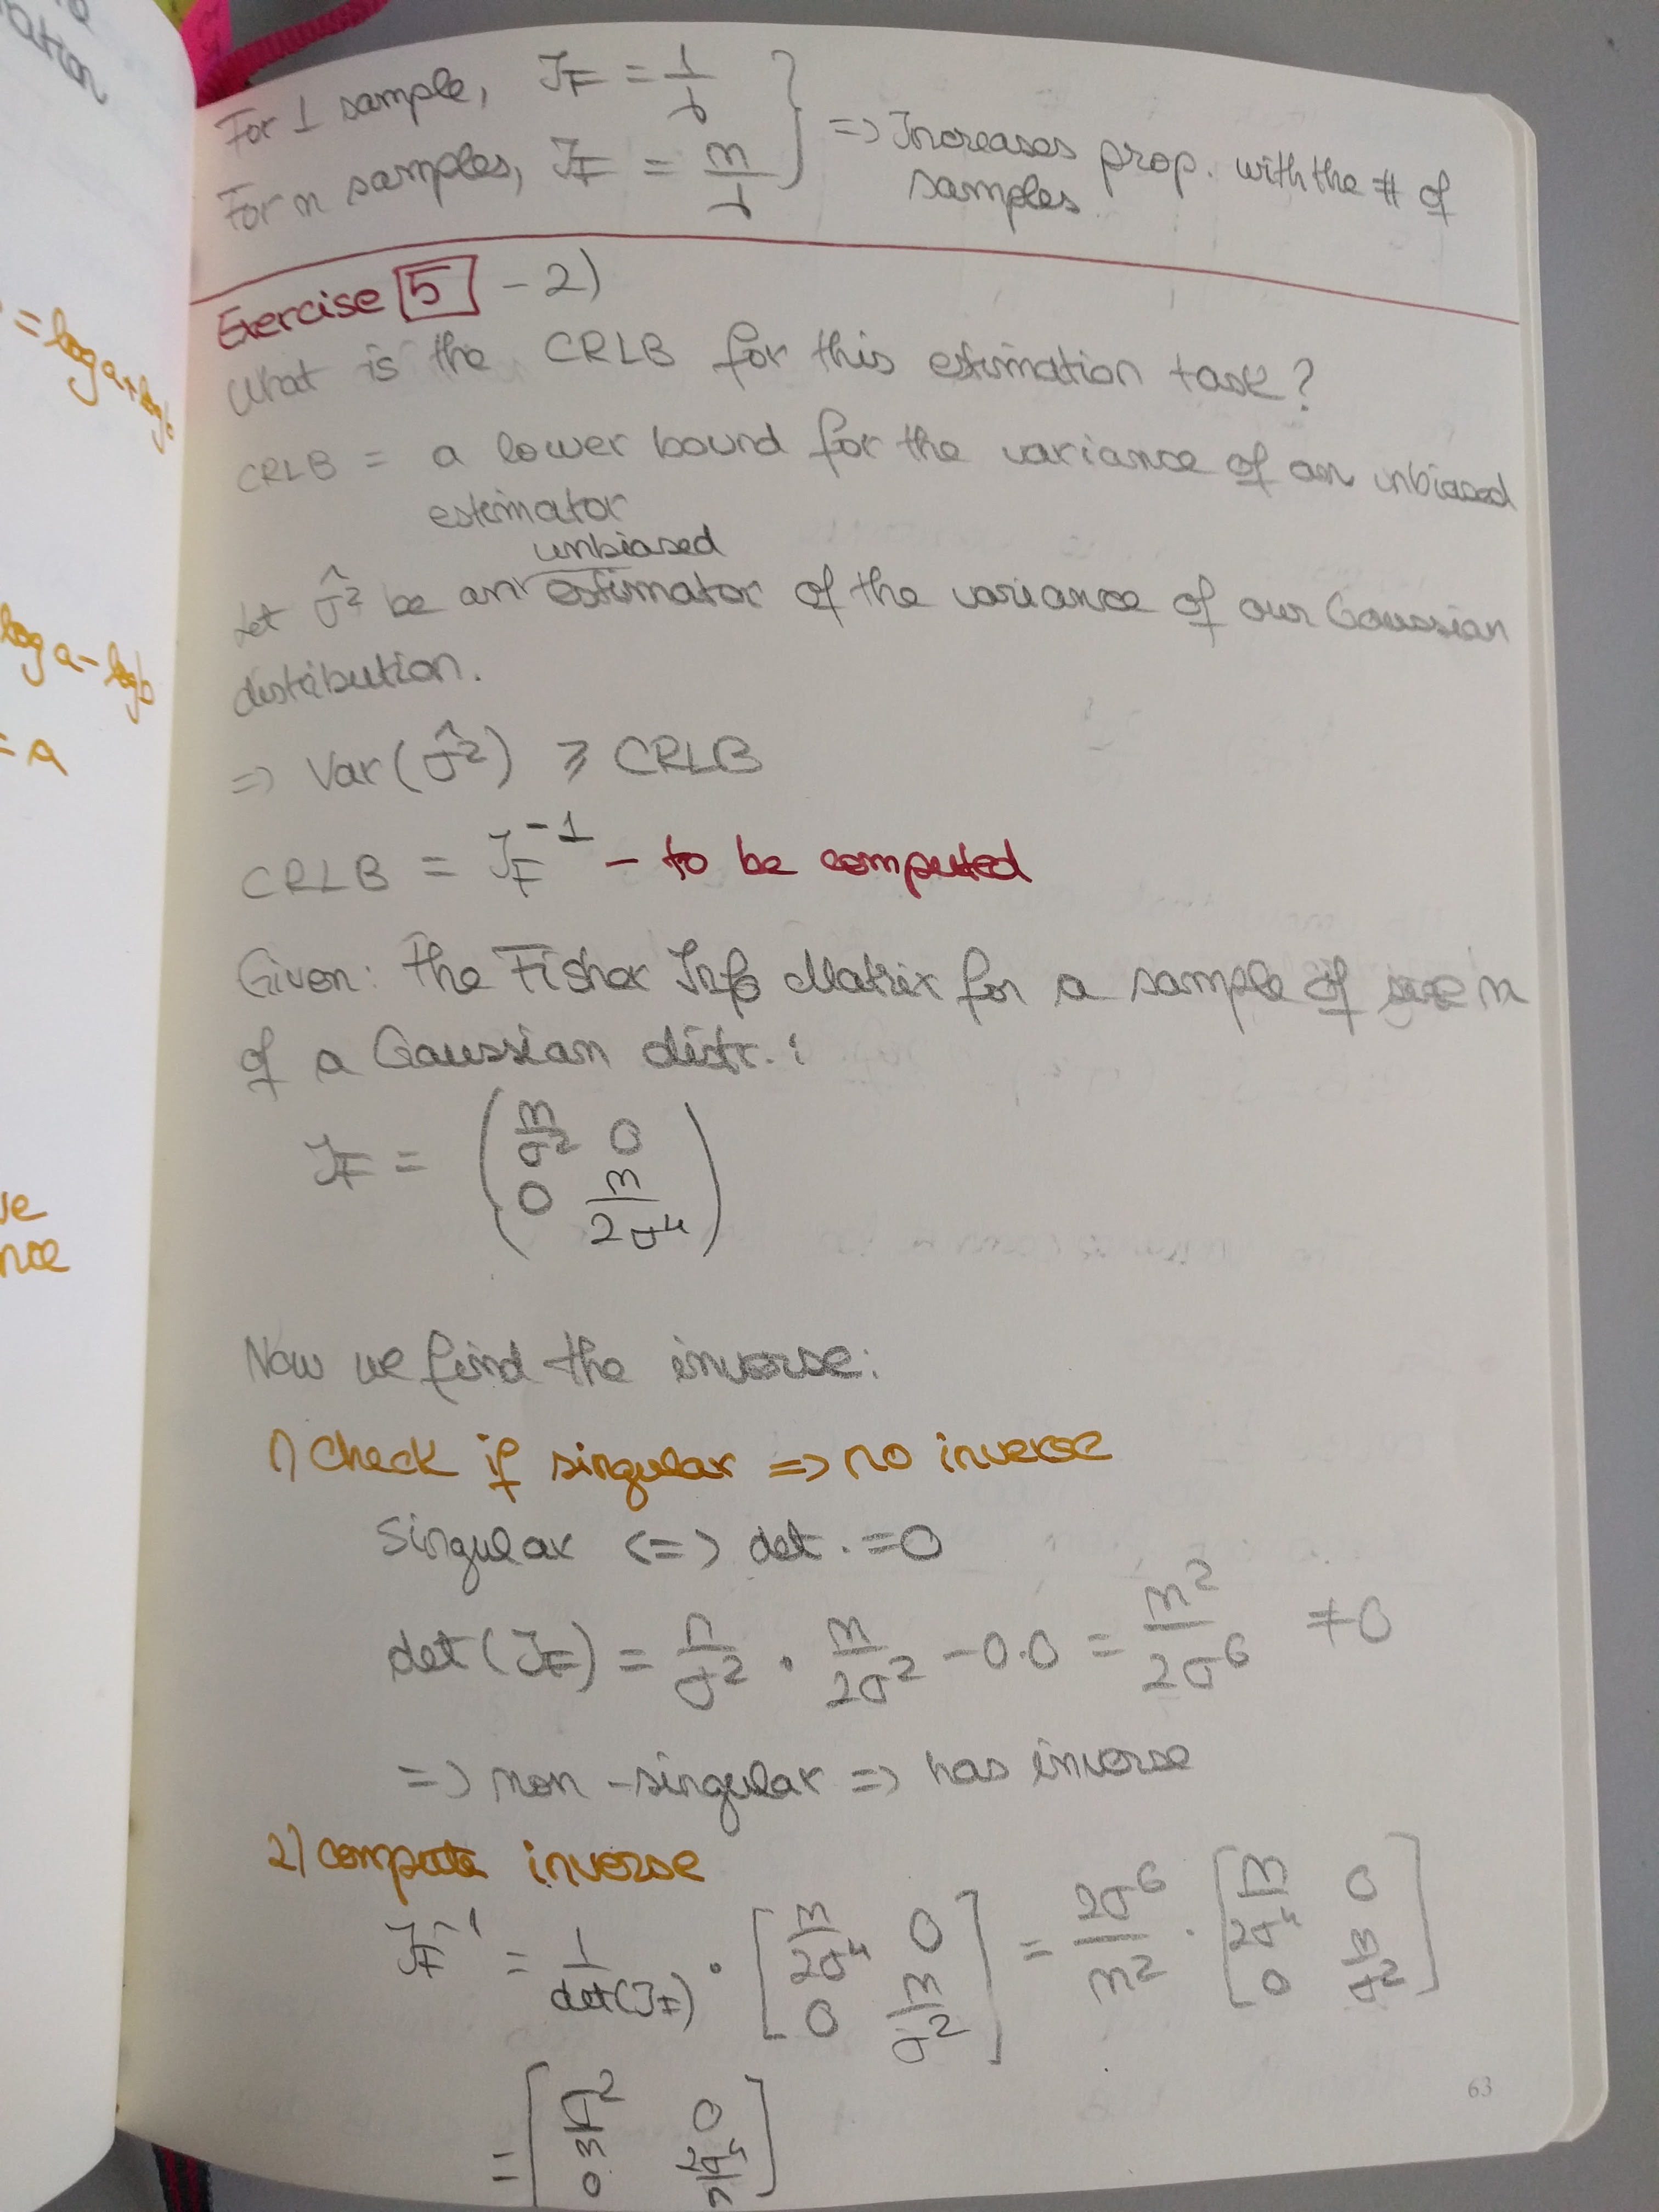 ation
= log a + log b
log a - log b
= a
ve
nce
For 1 sample, J_F = 1/σ
For n samples, J_F = n/σ } => Increases prop. with the # of samples
Exercise 5 - 2)
What is the CRLB for this estimation task?
CRLB = a lower bound for the variance of an unbiased
estimator
unbiased
Let σ̂² be an estimator of the variance of our Gaussian
distribution.
=> Var(σ̂²) ⩾ CRLB
CRLB = J_F^-1 - to be computed
Given: the Fisher Info Matrix for a sample of size n
of a Gaussian distr.:
J_F = ( n/σ² 0
0 n/2σ⁴ )
Now we find the inverse:
1) Check if singular => no inverse
Singular <=> det. = 0
det(J_F) = n/σ² · n/2σ² - 0·0 = n²/2σ⁶ ≠ 0
=> non-singular => has inverse
2) compute inverse
J_F^-1 = 1/det(J_F) · [ n/2σ⁴ 0 ; 0 n/σ² ] = 2σ⁶/n² · [ n/2σ⁴ 0 ; 0 n/σ² ]
= [ σ²/n 0 ; 0 2σ⁴/n ]
63